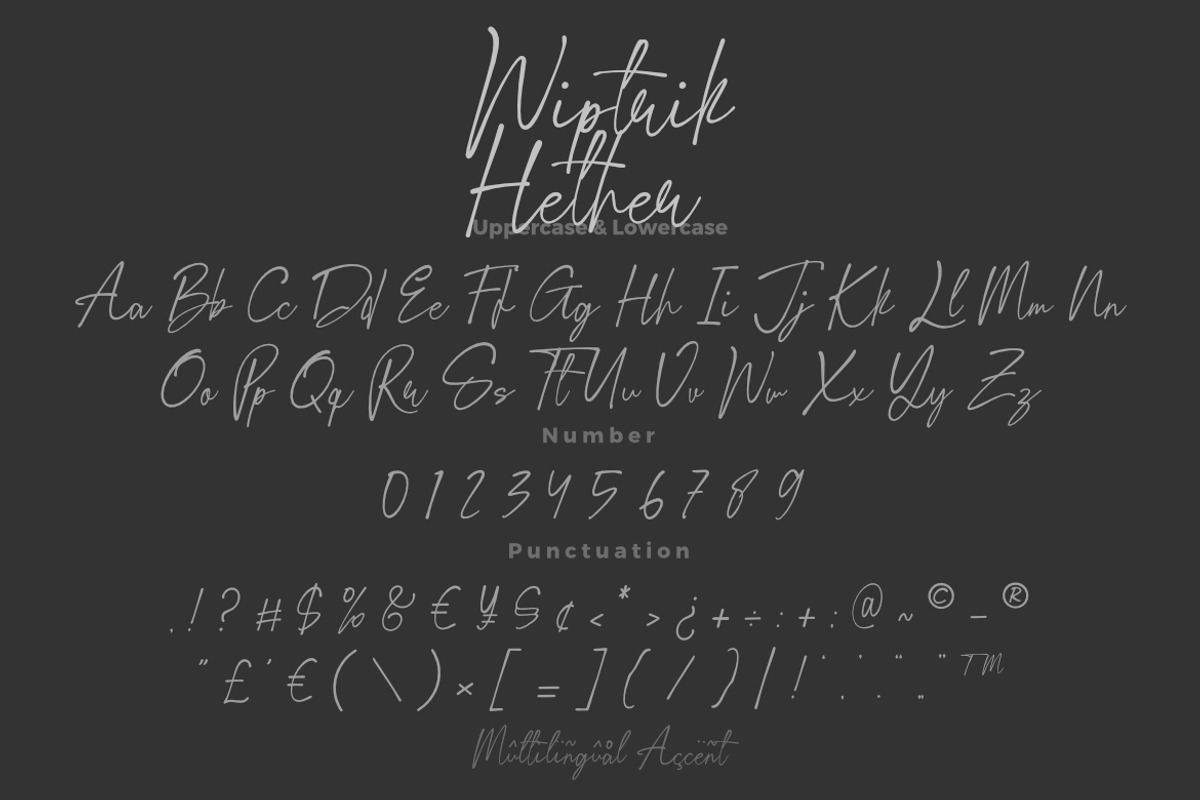 Wiptrik
Hether
Uppercase & Lowercase
Aa Bb Cc Dd Ee Ff Gg Hh Ii Jj Kk Ll Mm Nn
Oo Pp Qq Rr Ss Tt Uu Vv Ww Xx Yy Zz
Number
0 1 2 3 4 5 6 7 8 9
Punctuation
. ! ? # $ % & € ¥ S ¢ < * > ¿ + ÷ : + : @ ~ © – ®
" £ ' € ( \ ) × [ = ] { / } | ! ‘ , ’ . “ „ ” ™
Mûltïlïngûål Aşcënt